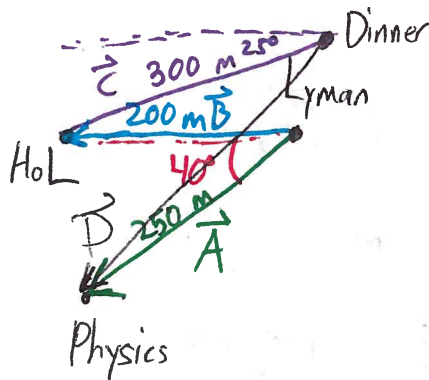 Dinner
25°
C 300 m
Lyman
200 m B
HoL
40°
D
250 m
A
Physics